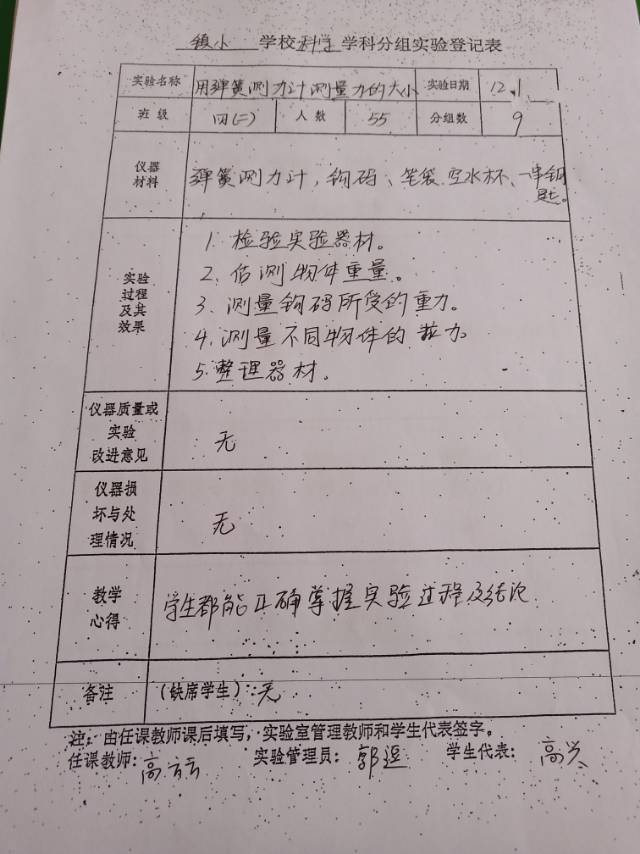 镇小 学校科学学科分组实验登记表
实验名称 用弹簧测力计测量力的大小 实验日期 12.1
班级 四(二) 人数 55 分组数 9
仪器材料 弹簧测力计，钩码、笔袋、空水杯、一串钥匙。
实验过程及其效果
1. 检验实验器材。
2. 估测物体重量。
3. 测量钩码所受的重力。
4. 测量不同物体的拉力。
5. 整理器材。
仪器质量或实验改进意见 无
仪器损坏与处理情况 无
教学心得 学生都能正确掌握实验过程及结论
备注 (缺席学生)：无
注：由任课教师课后填写，实验室管理教师和学生代表签字。
任课教师：高 实验管理员：郭 学生代表：高兴